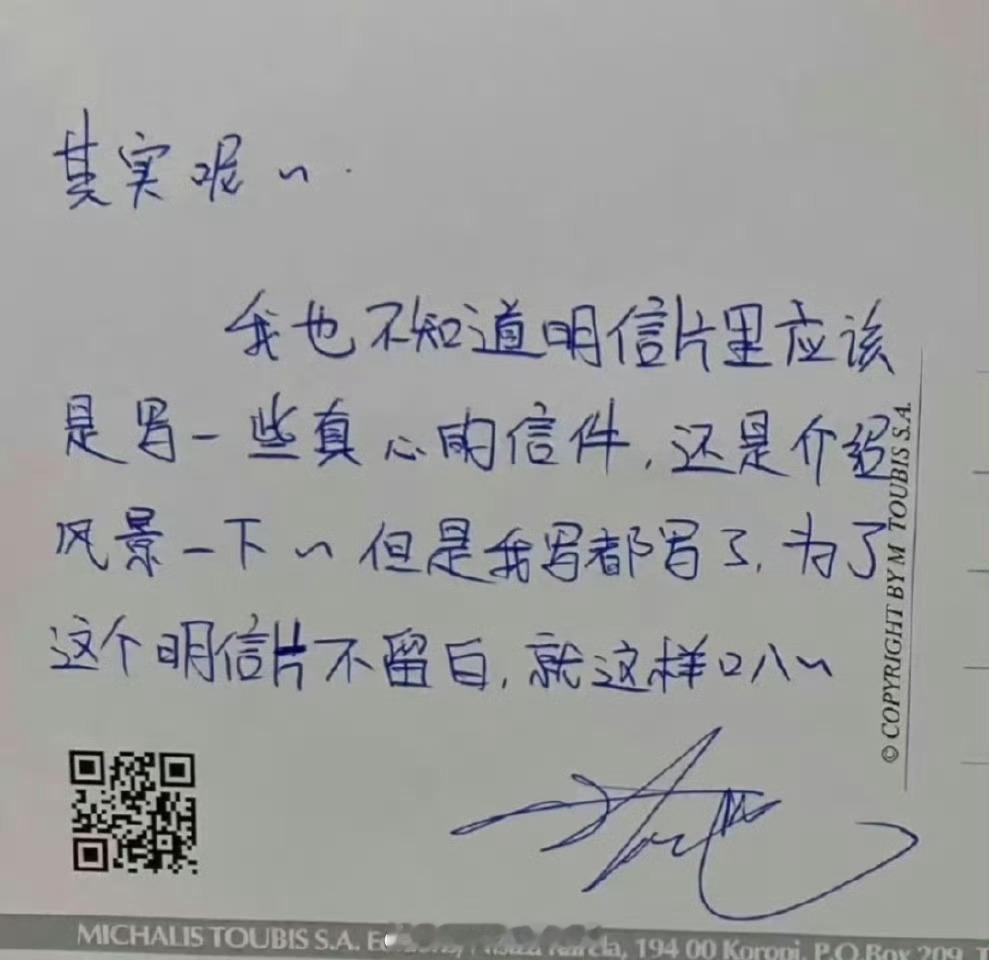 其实呢~.
我也不知道明信片里应该
是写一些真心的信件,还是介绍
风景一下~但是我写都写了,为了
这个明信片不留白,就这样口八~
© COPYRIGHT BY M. TOUBIS S.A.
MICHALIS TOUBIS S.A. 194 00 Koropi, P.O.Box 209,